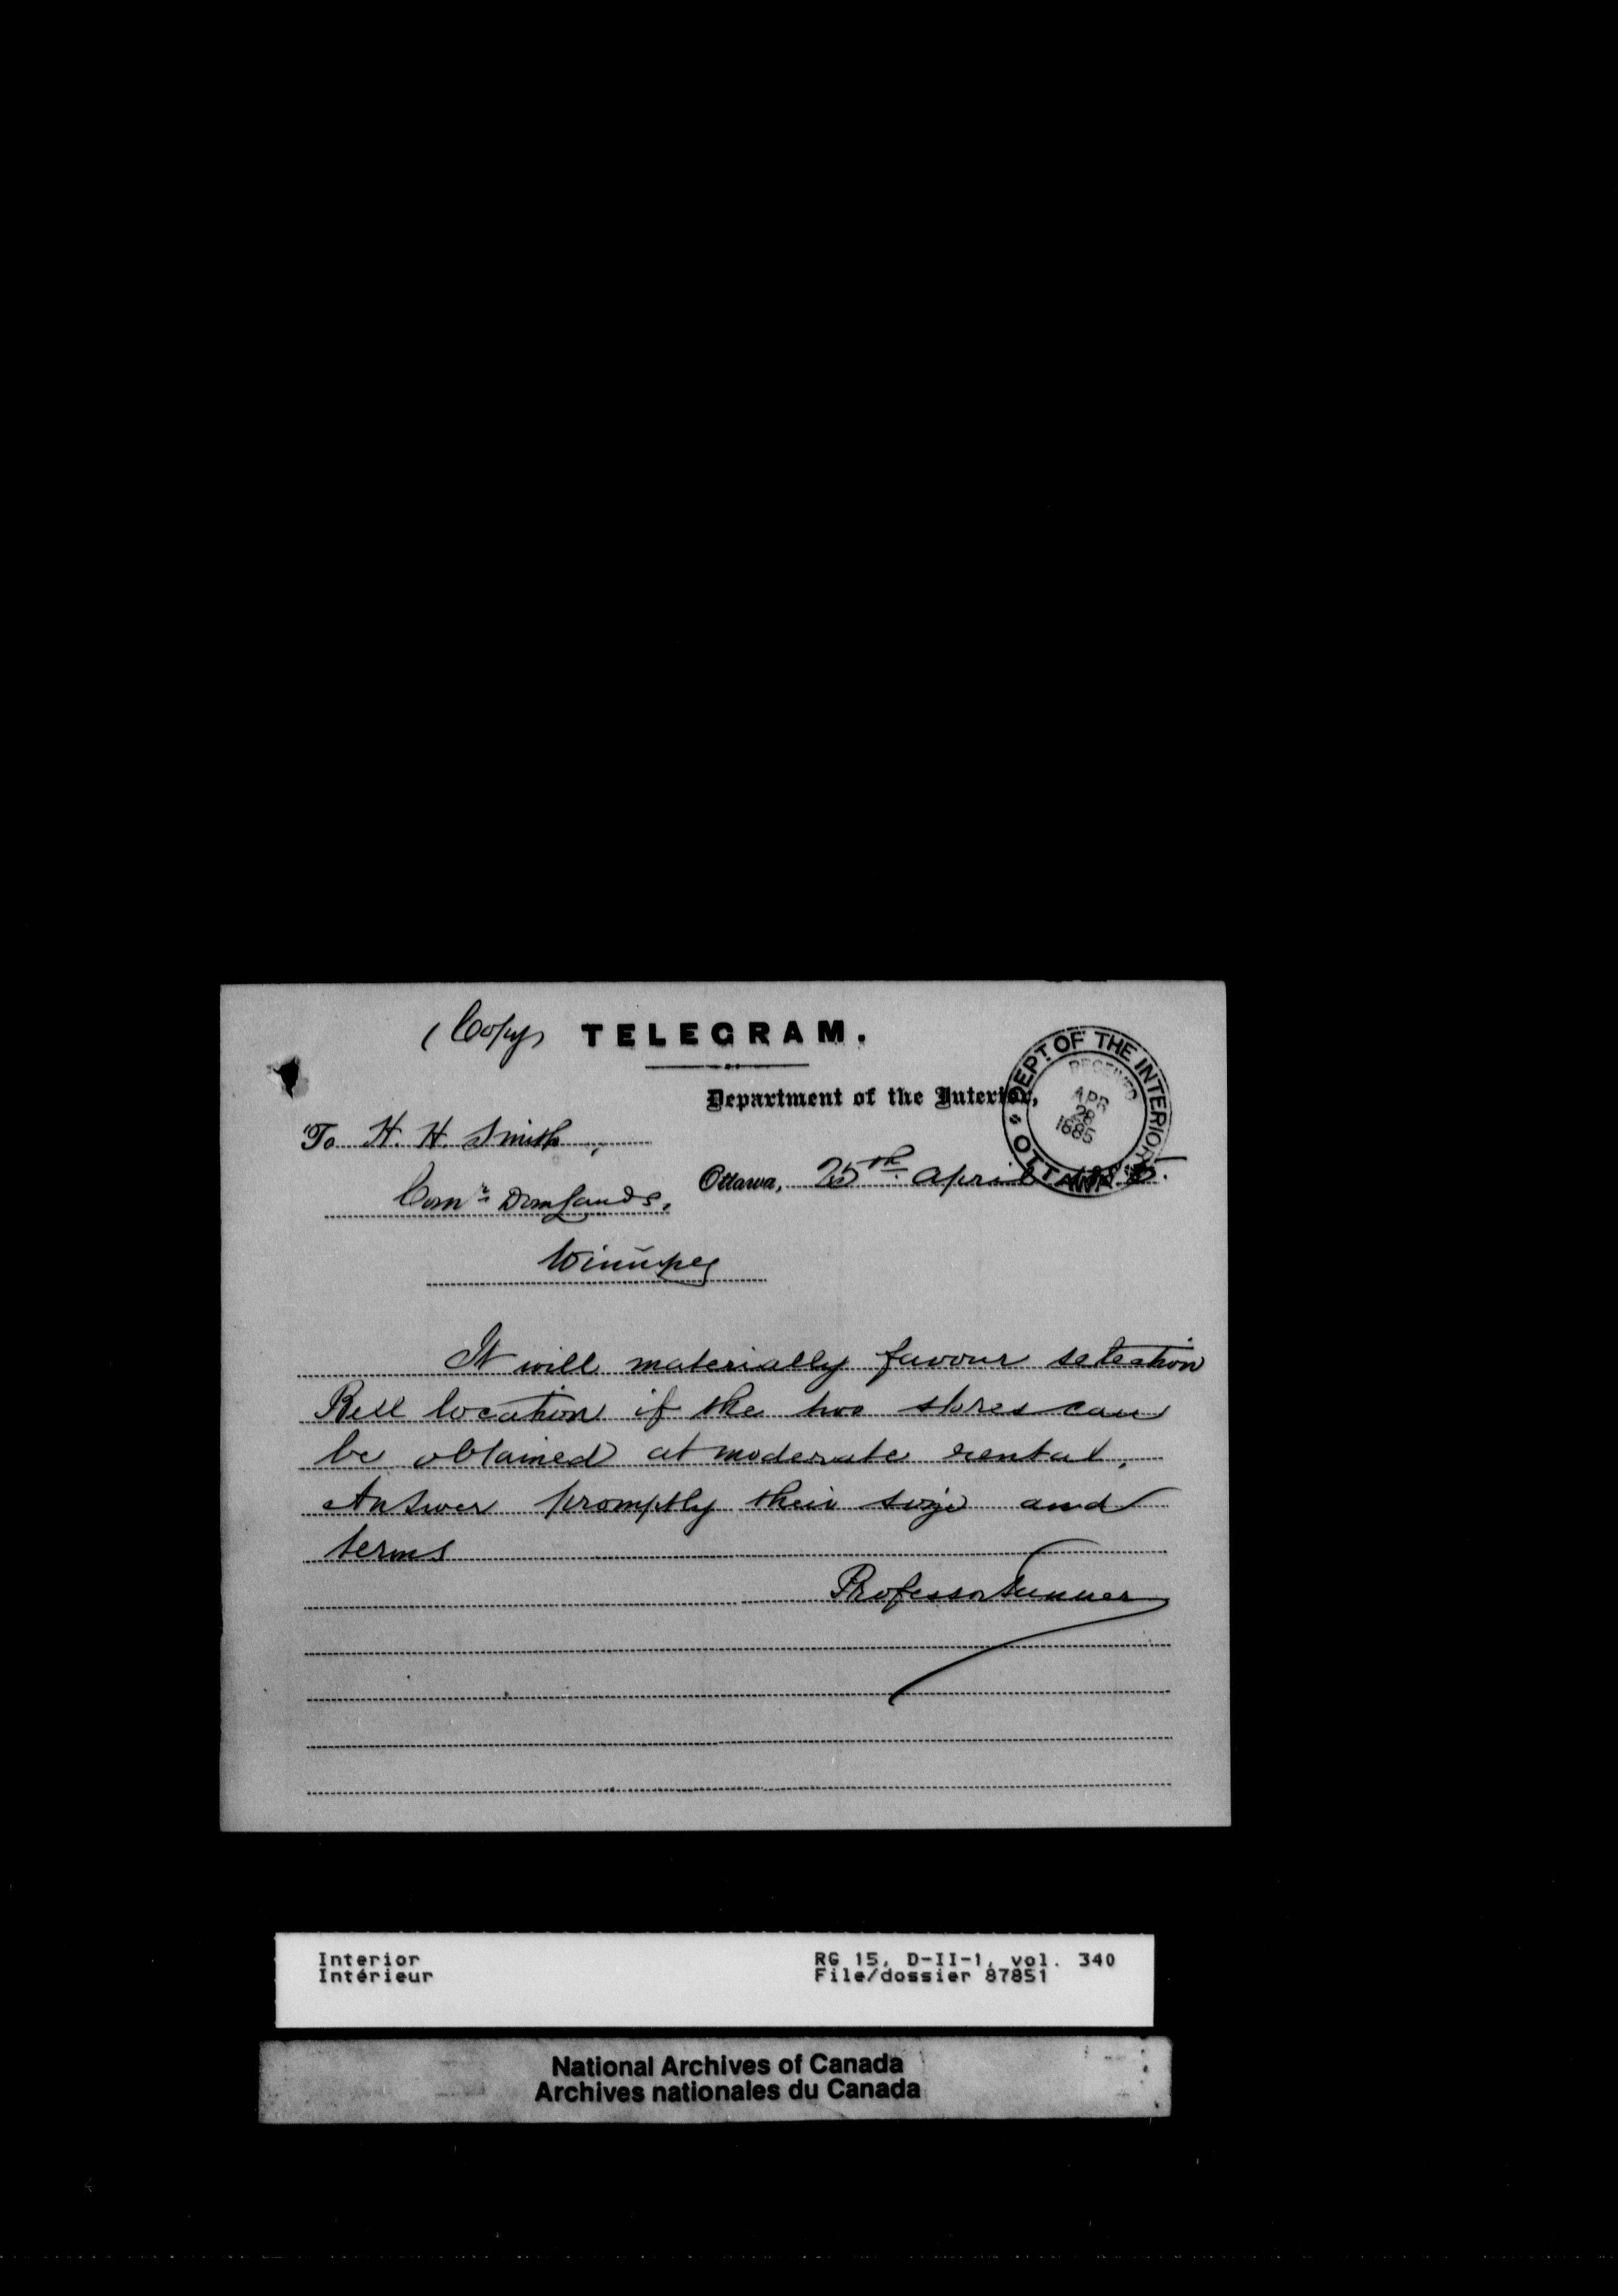 (Copy) TELEGRAM.
Department of the Interior,
DEPT. OF THE INTERIOR
RECEIVED
APR
28
1885
OTTAWA
To H. H. Smith,
Ottawa, 25th April 1885.
Comr Dom Lands,
Winnipeg
It will materially favour selection
Bell location if the two stores can
be obtained at moderate rental.
Answer promptly their size and
terms
Professor Tanner
Interior
Intérieur
RG 15, D-II-1, vol. 340
File/dossier 87851
National Archives of Canada
Archives nationales du Canada